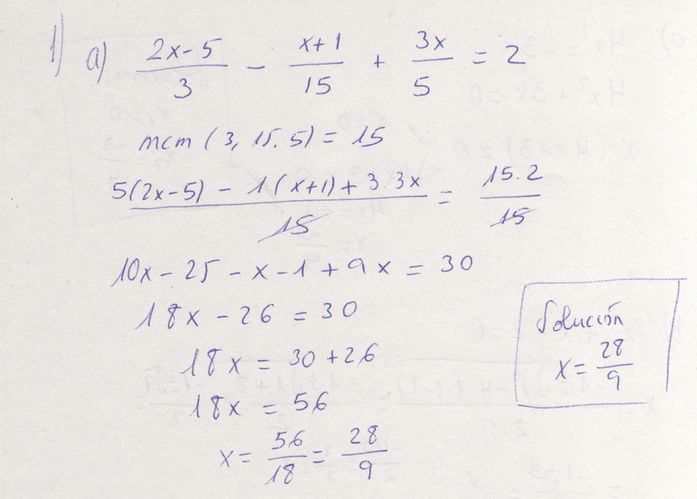 1) a) (2x-5)/3 - (x+1)/15 + 3x/5 = 2
mcm (3, 15, 5) = 15
(5(2x-5) - 1(x+1) + 3·3x)/15 = (15·2)/15
10x - 25 - x - 1 + 9x = 30
18x - 26 = 30
18x = 30 + 26
18x = 56
x = 56/18 = 28/9
Solución
x = 28/9